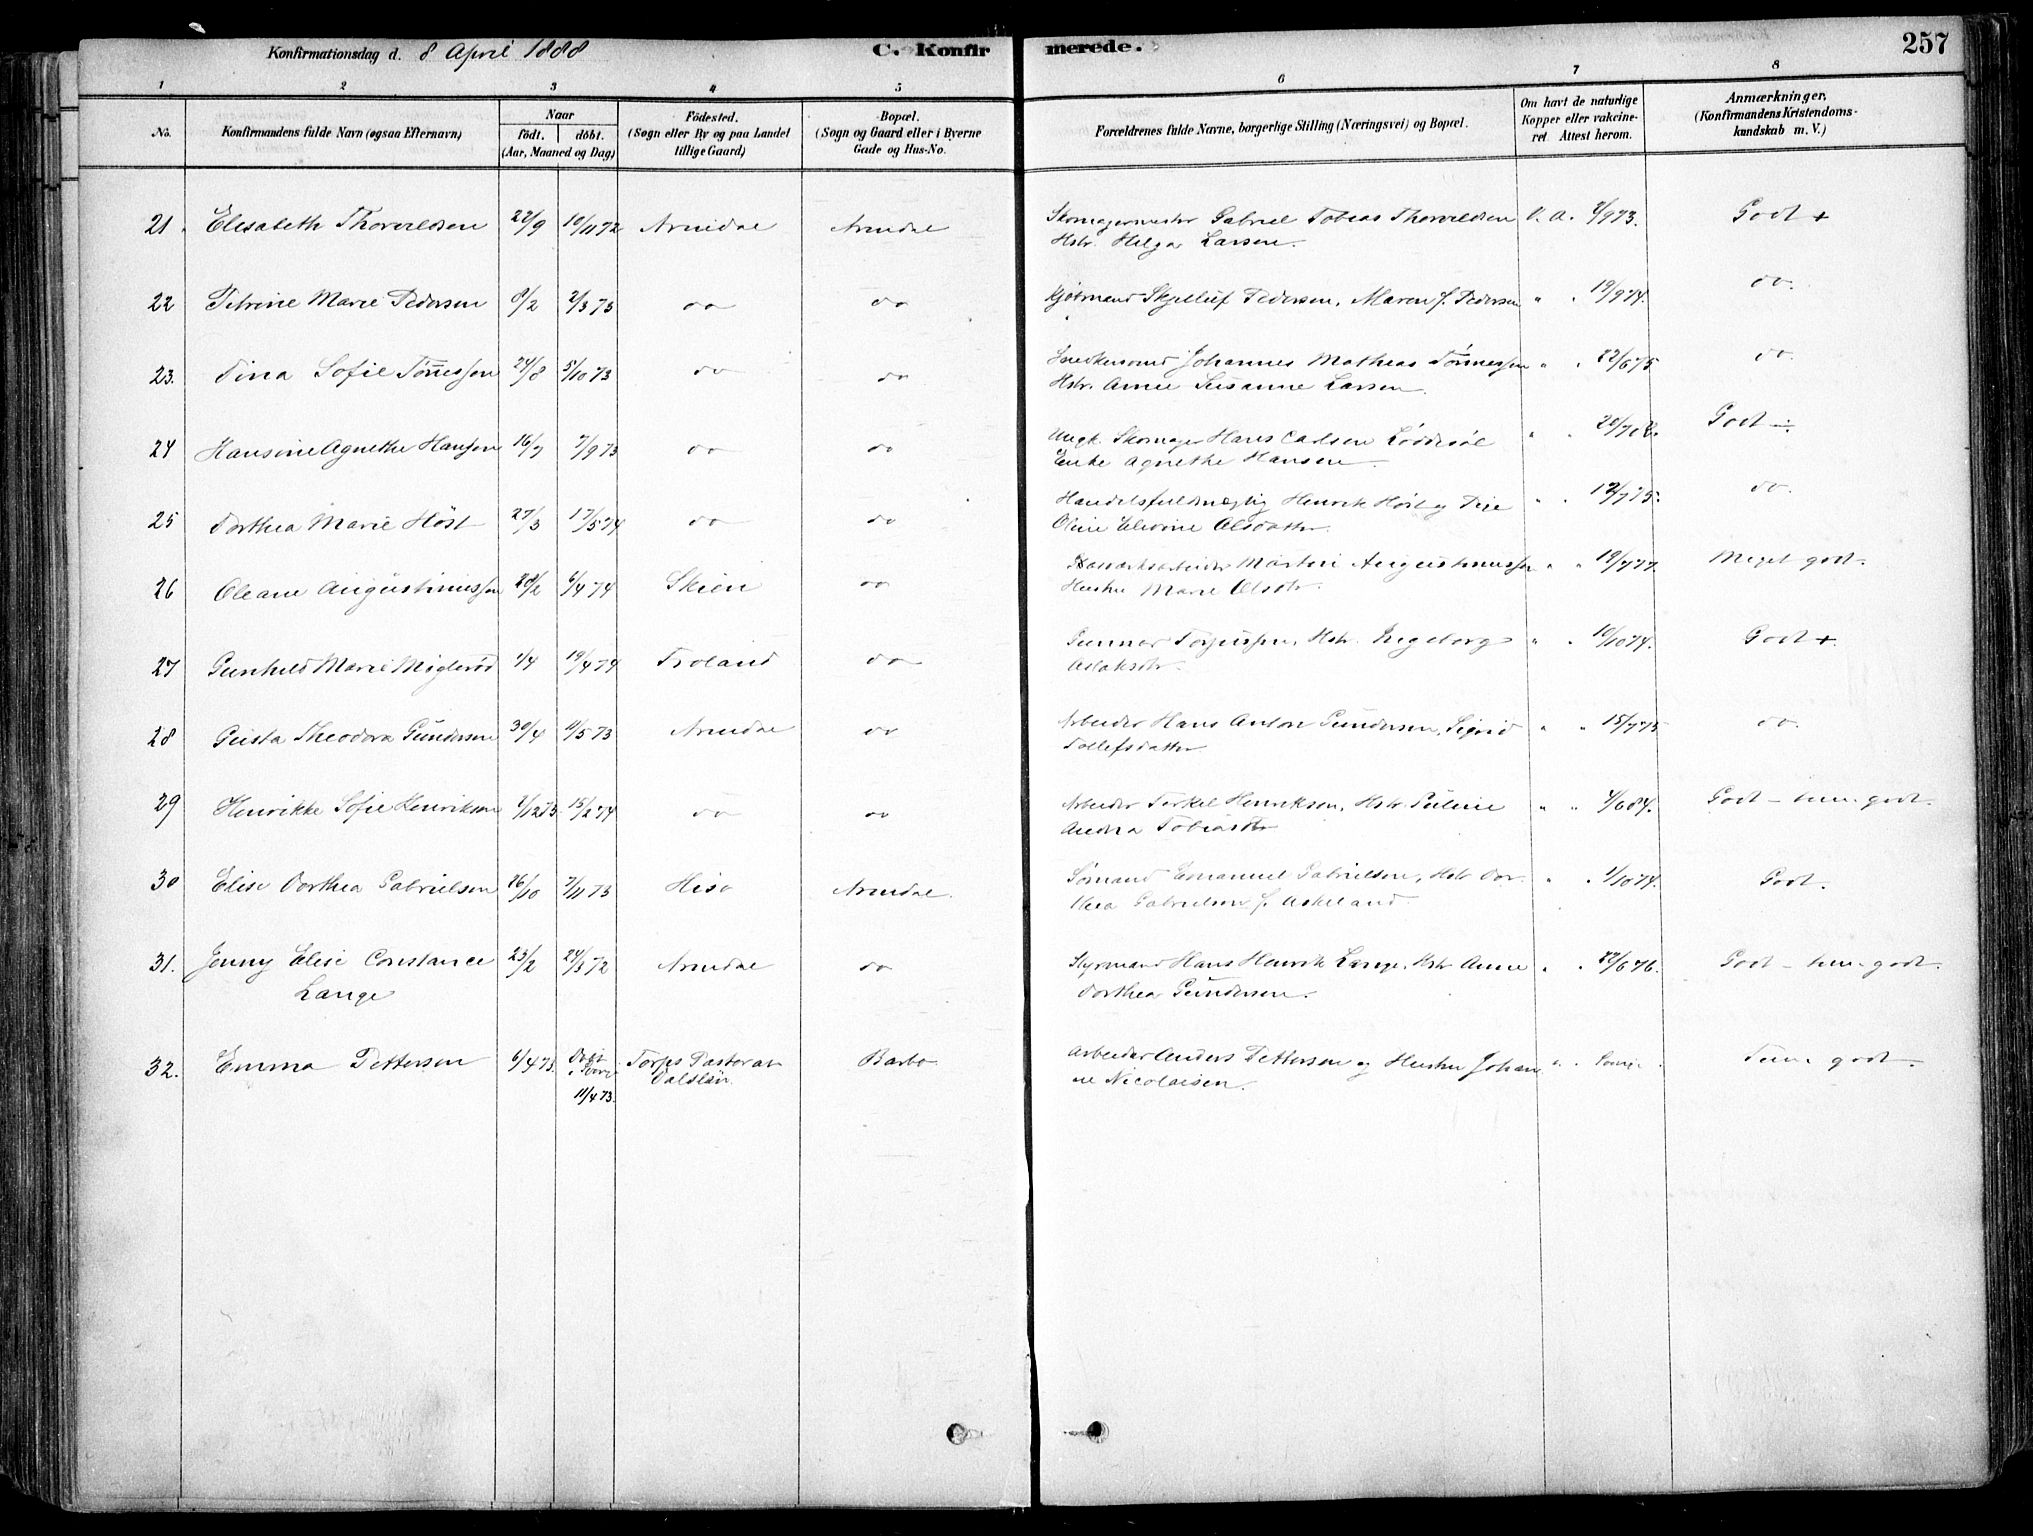 Konfirmationsdag d. 8 April 1888 C. Konfirmerede. 257
1 2 3 4 5 6 7 8
No. Konfirmandens fulde Navn (øgsaa Efternavn) Naar født. døbt. (Aar, Maaned og Dag) Fødested. (Sogn eller By og paa Landet tillige Gaard) Bopæl. (Sogn og Gaard eller i Byerne Gade og Hus-No. Forældrenes fulde Navne, borgerlige Stilling (Næringsvei) og Bopæl. Om havt de naturlige Kopper eller vakcineret Attest herom. Anmærkninger. (Konfirmandens Kristendomskundskab m. V.)
21. Elisabeth Thorvildsen 22/9 10/11 72 Arendal Arendal Skomagermester Gabriel Tobias Thorvildsen V. A. 2/9 73. Godt +
Hstr. Helga Larsen.
22 Petrine Marie Pedersen 8/2 2/3 73 do do Kjøbmand Skjelluf Pedersen, Maren f. Pedersen " " 19/9 74. do.
23. Tina Sofie Tønnessen 24/8 5/10 73 do do Snedkersvend Johannes Mathias Tønnessen " " 22/6 75 do
Hstr. Anne Susanne Larsen.
24 Hansine Agnethe Hansen 16/7 7/9 73 do do Ungk. Skomager Hans Carlsen Løddesøl " " Godt ÷
Enke Agnethe Hansen.
25 Dorthea Marie Høst 27/3 17/5 74 do do Handelsfuldmægtig Henrik Høst og Pige " " 12/7 75. do.
Oline Elevine Olsdatter.
26 Oleane Augustinussen 28/2 6/4 74 Skien do Martin Augustinussen " " 19/7 77. Meget godt.
Hustru Marie Olsdtr.
27 Gunhild Marie Miglerød 1/4 19/4 74 Froland do Gunnar Torjussen, Hstr. Ingeborg " " 10/10 74. Godt +
Aslaksdtr.
28 Gusta Theodora Gundersen 30/4 11/5 73 Arendal do Arbeider Hans Anton Gundersen, Sigrid " " 15/7 75 do.
Tollefsdatter
29 Henrikke Sofie Henriksen 2/12 73. 15/2 74 do do Arbeider Terkel Henriksen, Hstr. " " 4/6 84. Godt - tem. godt.
Andrea Tobiasdtr
30 Elise Dorthea Gabrielsen 26/10 7/11 73 Hisø Arendal. Sømand Emanuel Gabrielsen, Hstr Dor- " " 1/10 74. Godt.
thea Gabrielsen f. Askeland.
31. Jenny Elise Constance 23/2 24/3 72 Arendal do Styrmand Hans Henrik Lange, Hstr Anne " " 22/6 76. Godt - tem. godt.
Lange Dorthea Gundersen.
32. Emma Pettersen 6/4 73. 11/4 73. Torps Pastorat Barbo Arbeider Anders Pettersen og Hustru Johan- " " Tem. godt.
Dalslan. ne Nicolaisen.